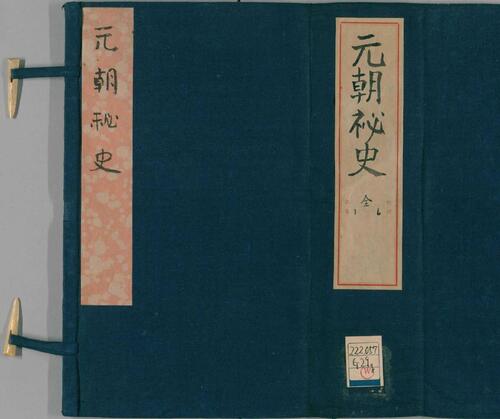 元朝秘史
元朝祕史
全
1 6
222.057
G29